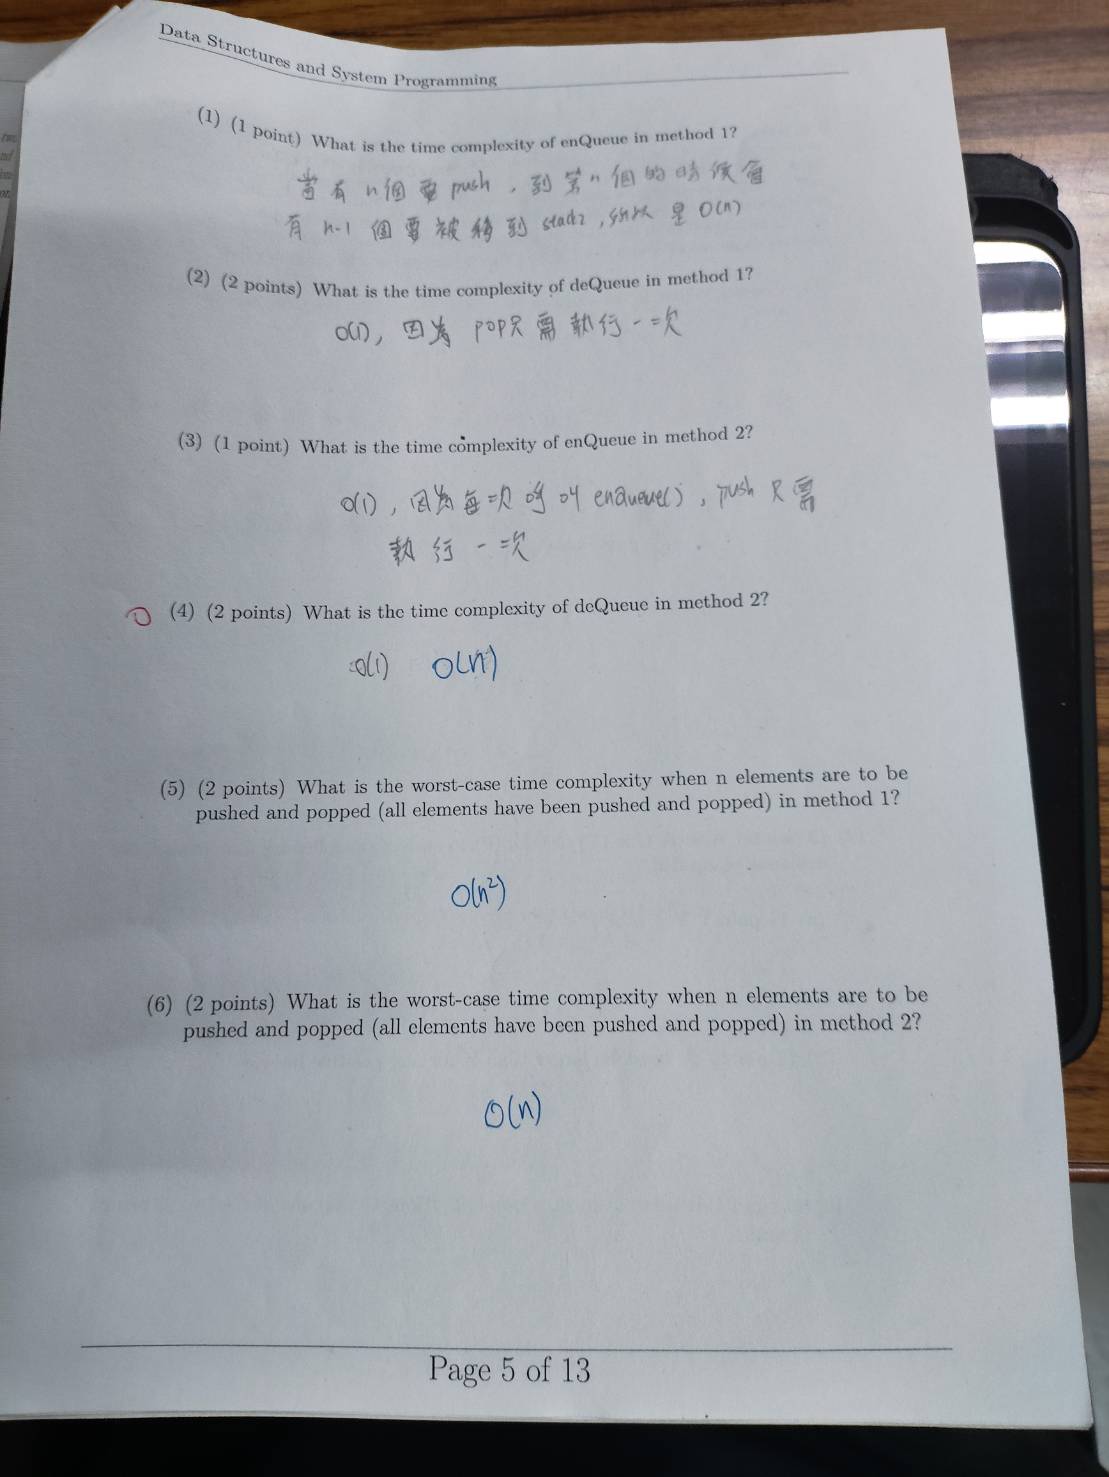 Data Structures and System Programming
(1) (1 point) What is the time complexity of enQueue in method 1?
當有 n個要 push, 到第n個的時候會
有 n-1 個要被移到 stack2, 所以是 O(n)
(2) (2 points) What is the time complexity of deQueue in method 1?
O(1), 因為 pop只需執行一次
(3) (1 point) What is the time complexity of enQueue in method 2?
O(1), 因為每次呼叫 enQueue(), push 只需
執行一次
(4) (2 points) What is the time complexity of deQueue in method 2?
O(1) O(n)
(5) (2 points) What is the worst-case time complexity when n elements are to be
pushed and popped (all elements have been pushed and popped) in method 1?
O(n²)
(6) (2 points) What is the worst-case time complexity when n elements are to be
pushed and popped (all elements have been pushed and popped) in method 2?
O(n)
Page 5 of 13